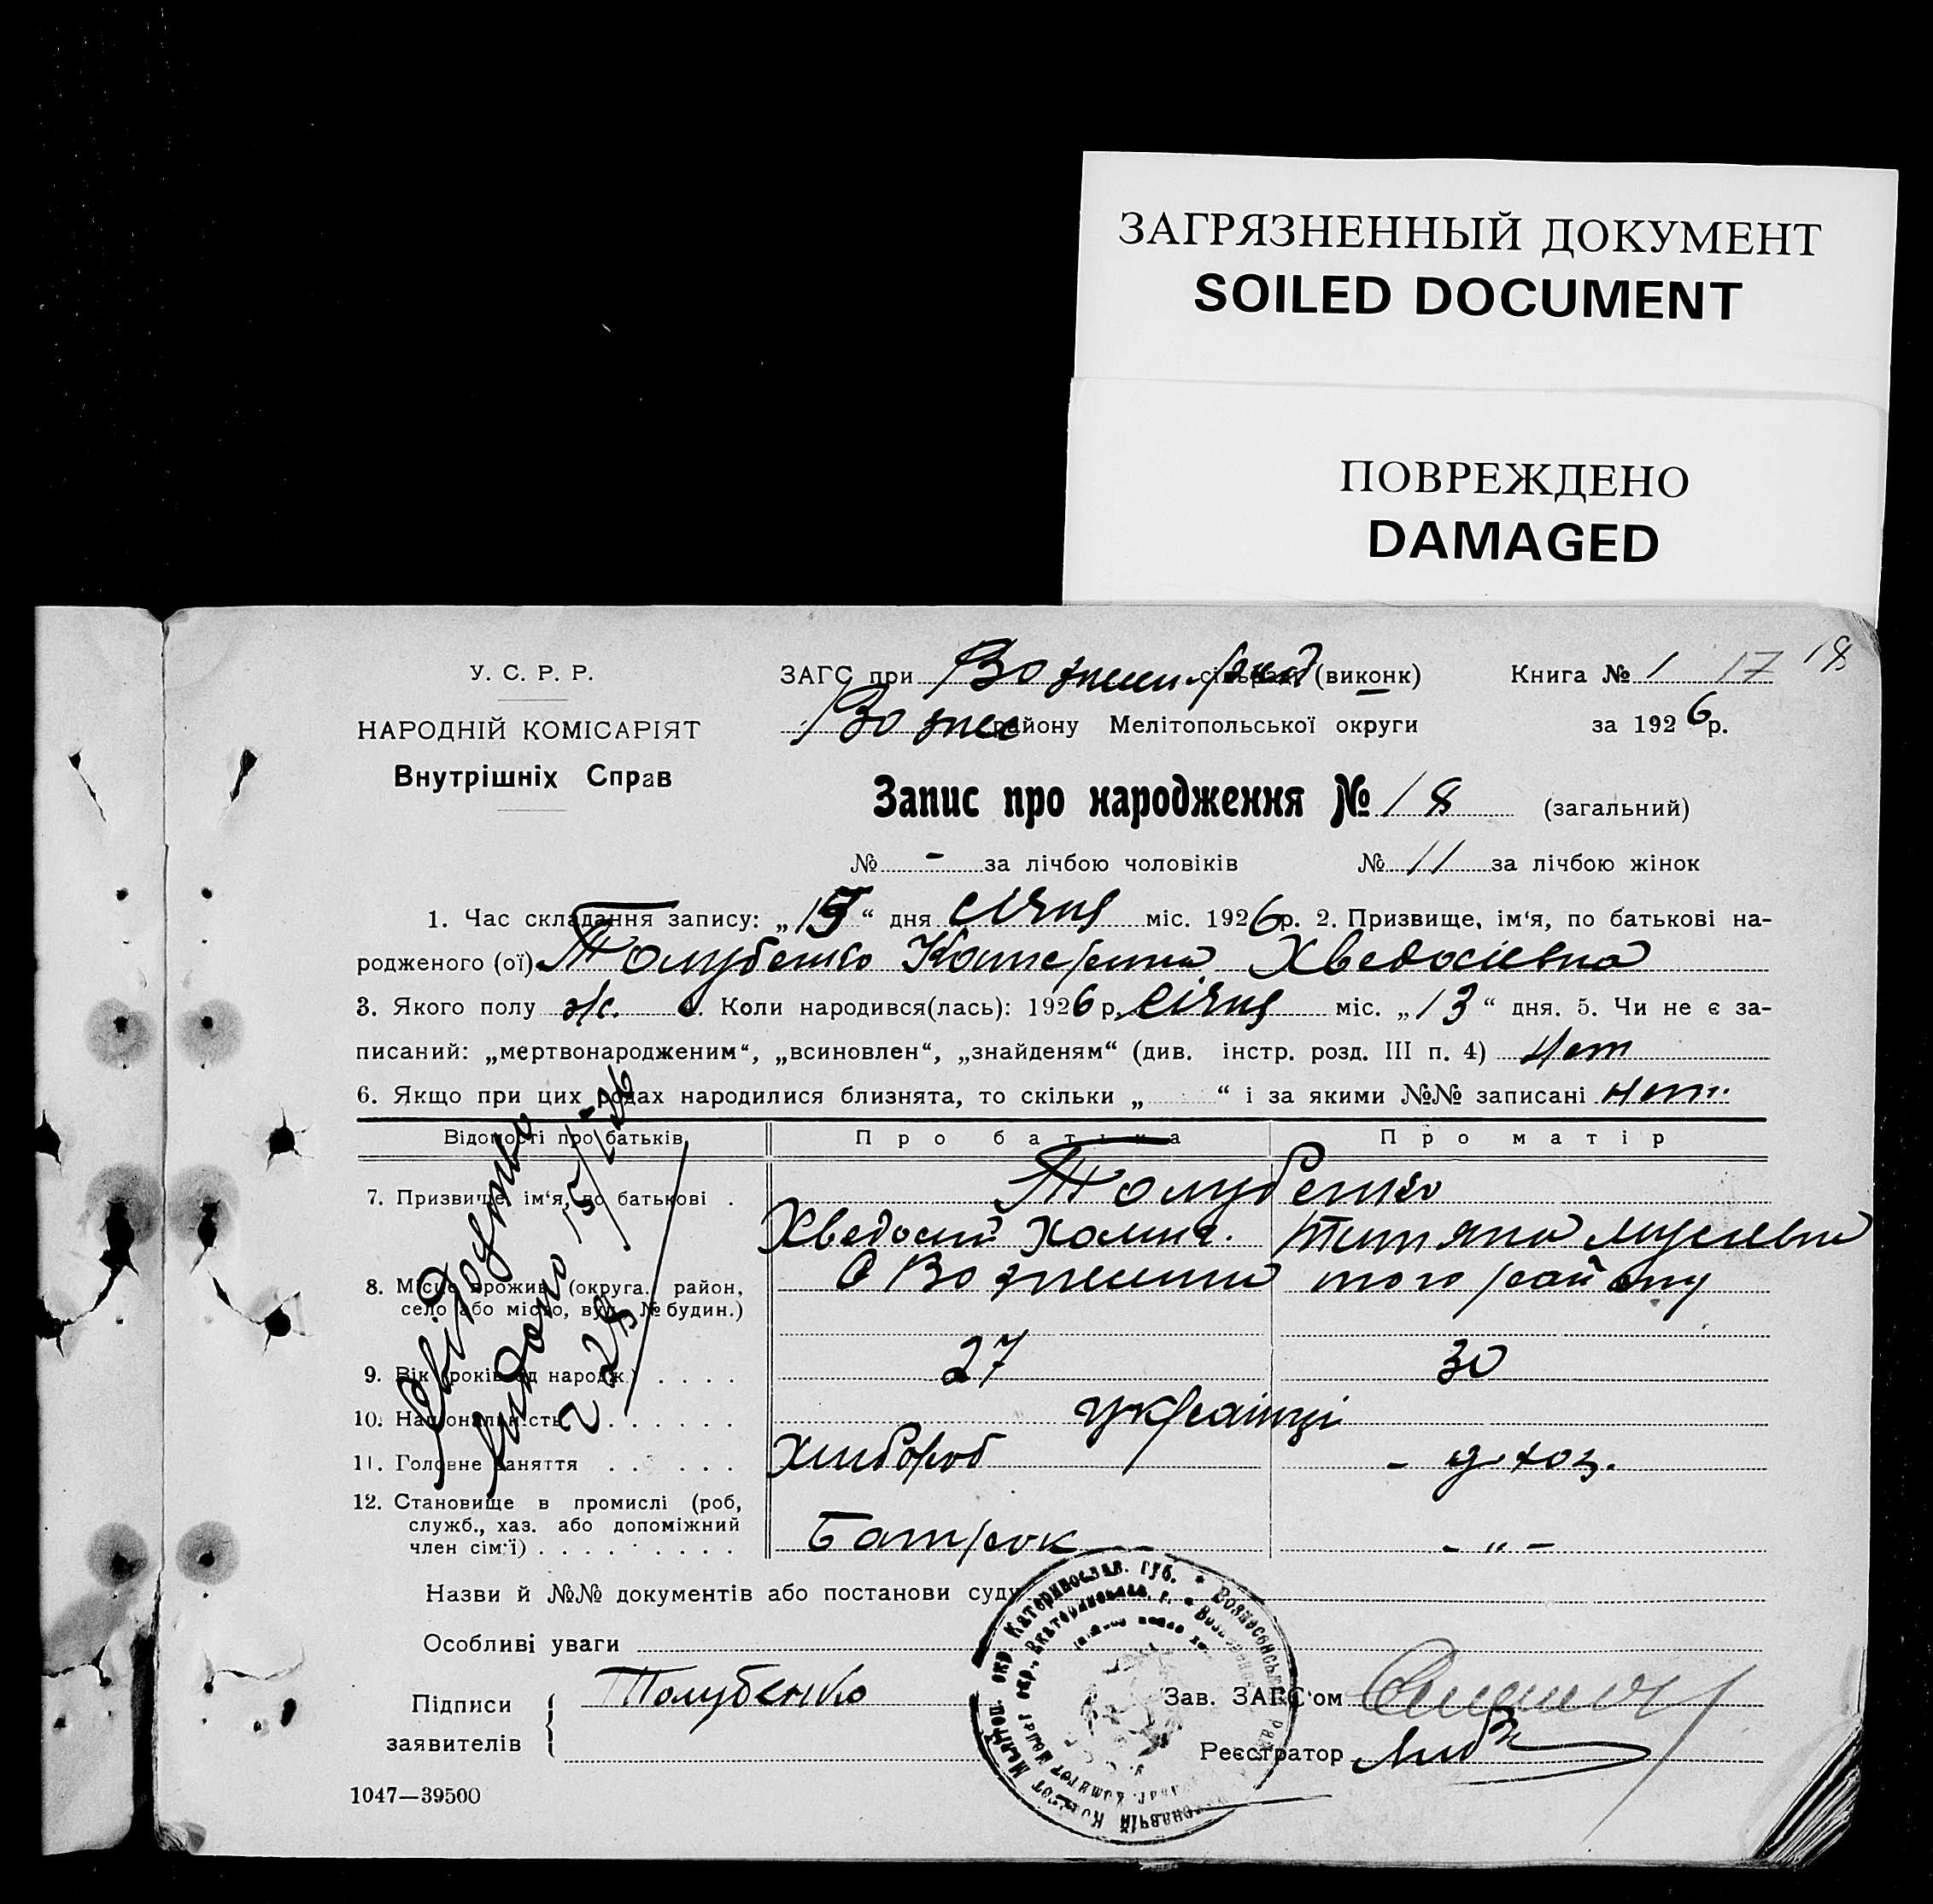 ЗАГРЯЗНЕННЫЙ ДОКУМЕНТ
SOILED DOCUMENT
ПОВРЕЖДЕНО
DAMAGED
У. С. Р. Р.
НАРОДНІЙ КОМІСАРІЯТ
Внутрішніх Справ
ЗАГС при сільрад (виконк)
району Мелітопольської округи
Книга № 1 17 18
за 1926 р.
Запис про народження № 18 (загальний)
№ - за лічбою чоловіків № 11 за лічбою жінок
1. Час складання запису: „15“ дня січня міс. 1926 р. 2. Призвище, ім‘я, по батькові на-
родженого (ої) Толубенко Катерина Хведосіевна
3. Якого полу ж. 4. Коли народився(лась): 1926 р. січня міс. „13“ дня. 5. Чи не є за-
писаний: „мертвонародженим“, „всиновлен“, „знайденям“ (див. інстр. розд. III п. 4) нет
6. Якщо при цих родах народилися близнята, то скільки „ “ і за якими №№ записані нет
Відомості про батьків Про батька Про матір
7. Призвище, ім‘я, по батькові . Толубенко
Хведосій Татяна
8. Місце прожив. (округа, район,
село або місто, вул. № будин.)
С Вознесенка того району
9. Вік (років від народж.) . . . . 27 30
10. Національність . . . . . . українці
11. Головне заняття . . . . . . Хлібороб - д. хоз.
12. Становище в промислі (роб,
служб., хаз. або допоміжний
член сім‘ї) . . . . . . . . . Батрок - „ -
Свідоцтво
видано 15/I-26
№ 228
Назви й №№ документів або постанови суду
Особливі уваги
Підписи
заявителів
Толубенко
Зав. ЗАГС‘ом
Реєстратор
Катеринослав. губ. * Вознесенськ
1047—39500